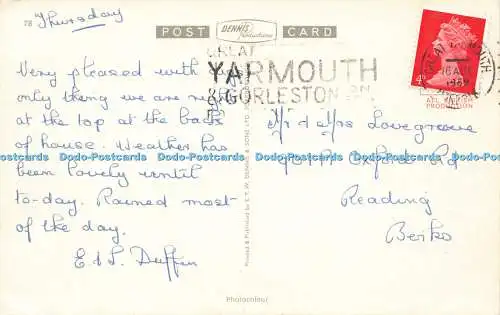 78 Thursday
POST DENNIS Productions CARD
GREAT
YARMOUTH
& GORLESTON
GREAT YARMOUTH
16 AUG
1969
4D
ALL BRITISH
PRODUCTION
Very pleased with
only thing we are right
at the top at the back
of house. Weather has
been lovely until
to-day. Rained most
of the day.
E & L Duffin
Mr & Mrs Lovegrove
Oxford Rd
Reading
Berks
Printed & Published by E. T. W. DENNIS & SONS LTD
Photocolour
Dodo-Postcards Dodo-Postcards Dodo-Postcards Dodo-Postcards Dodo-Postcards Dodo-Postcards